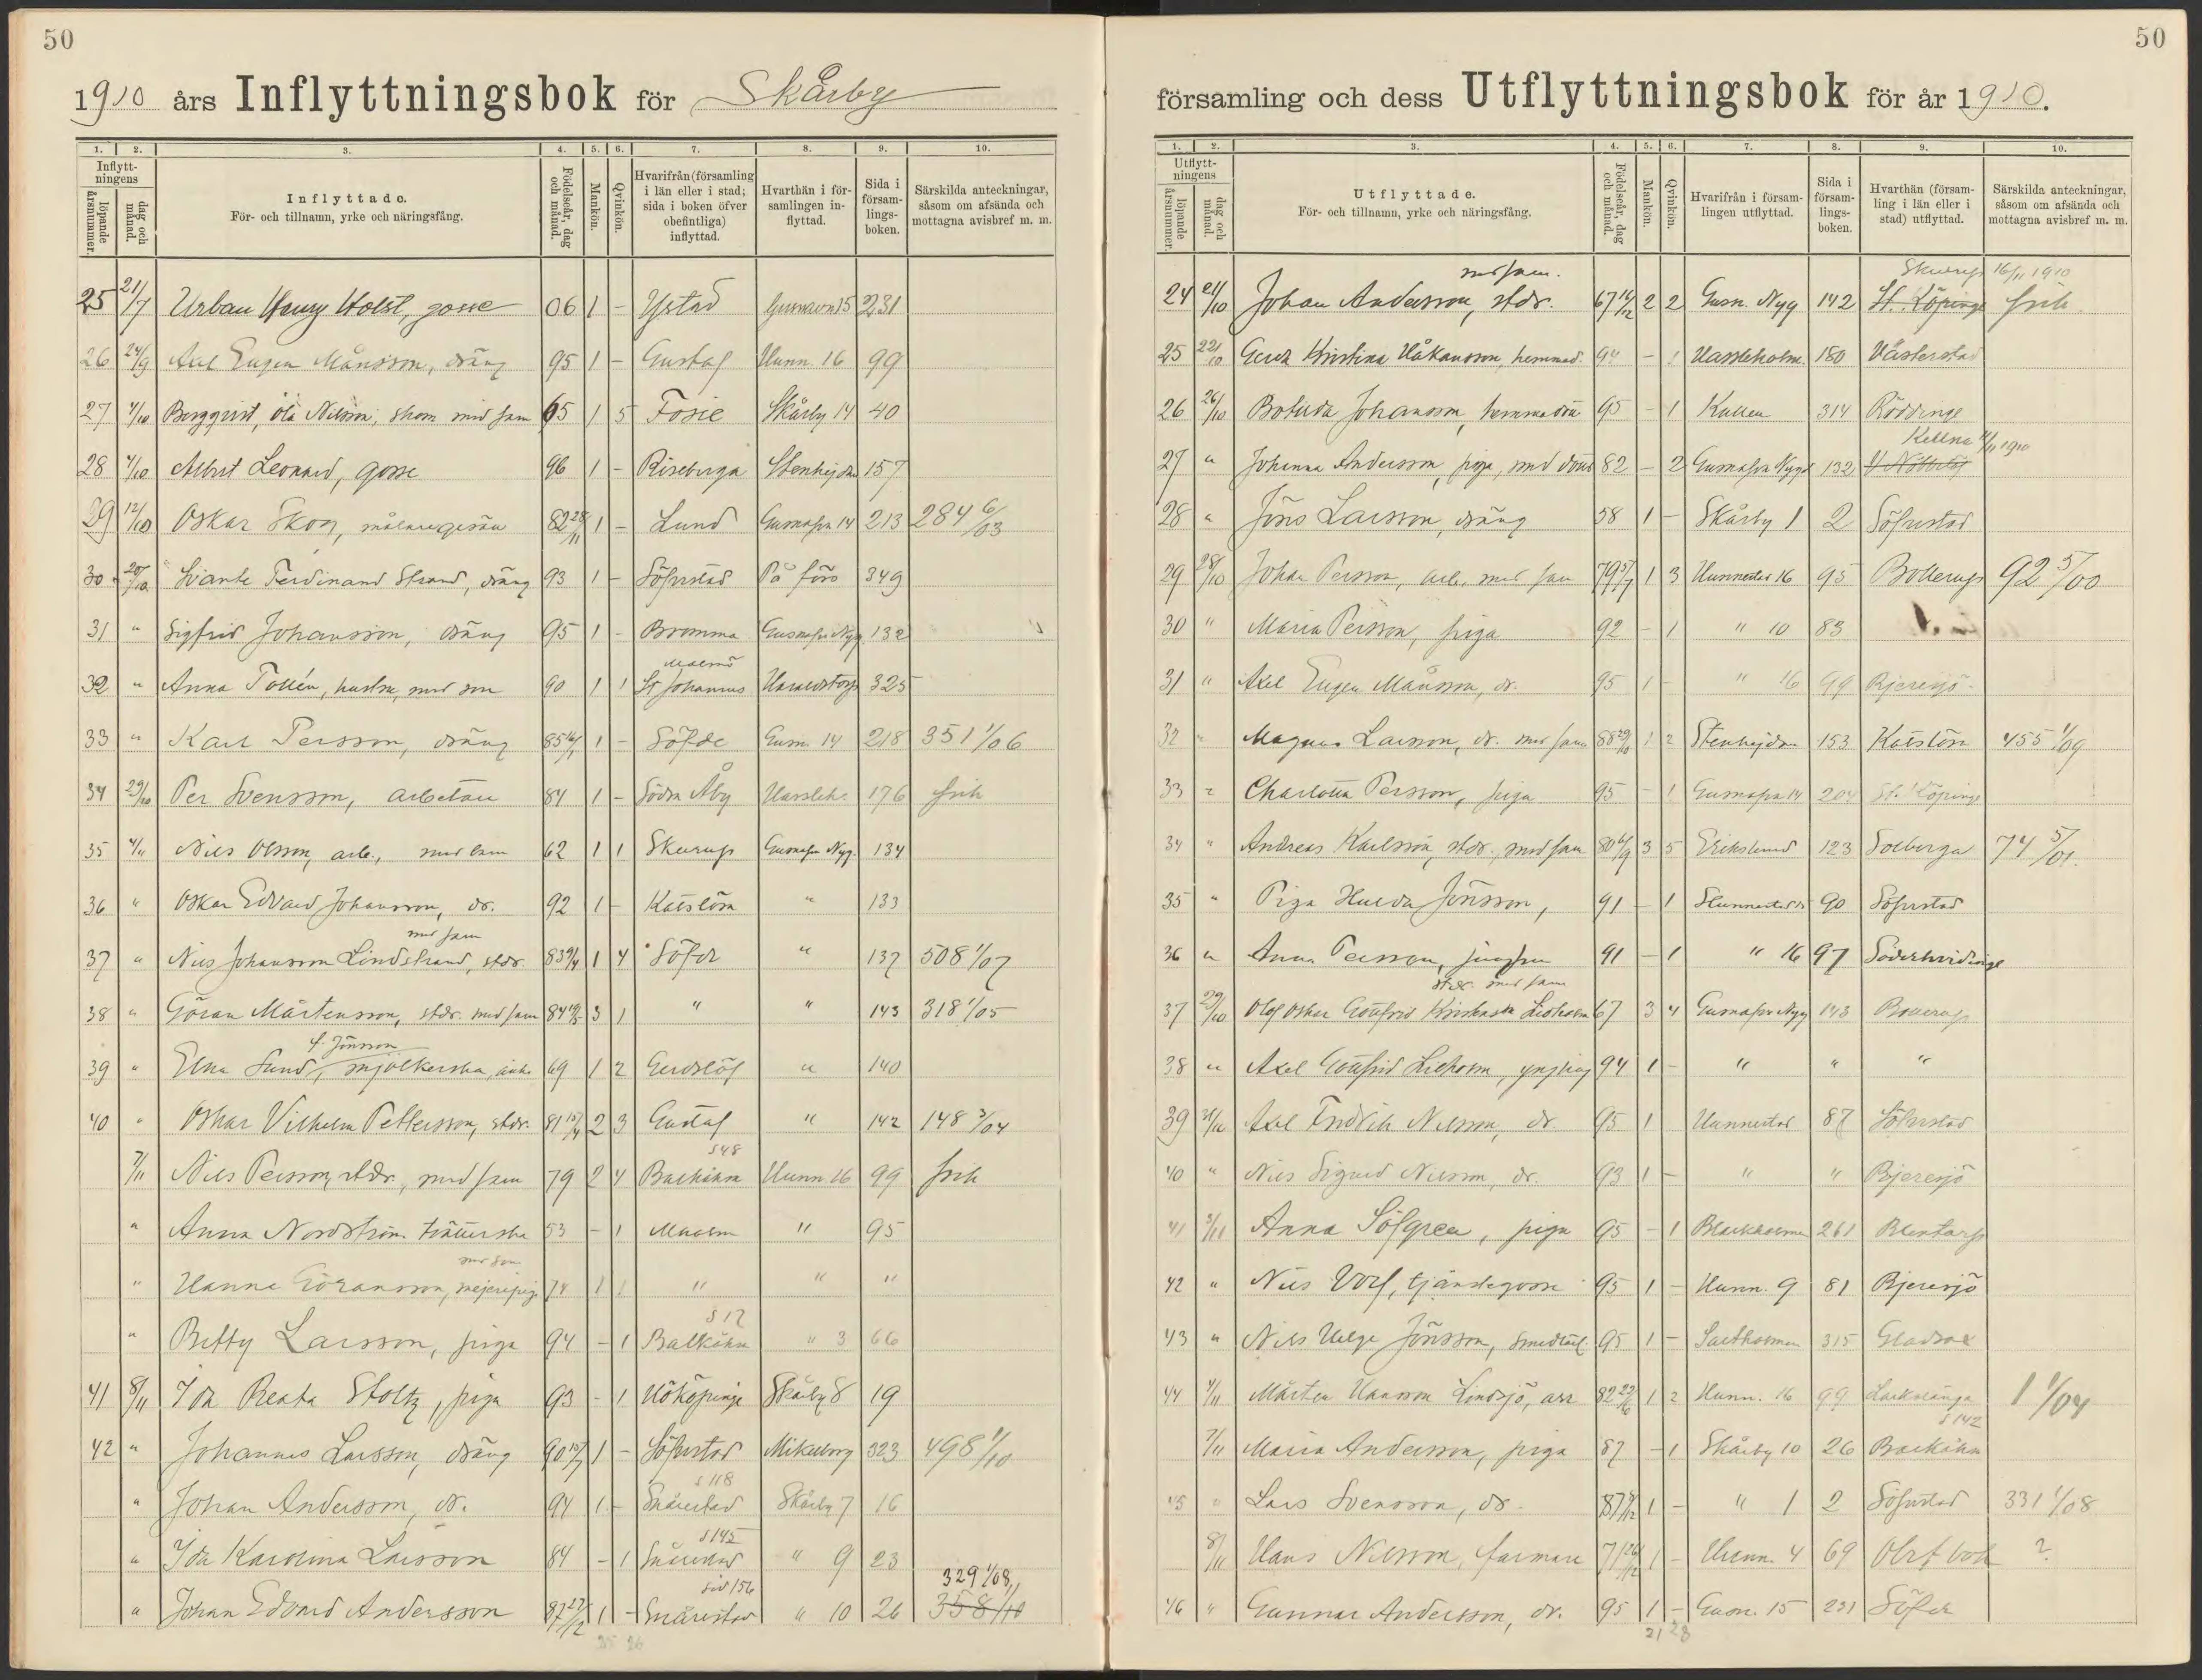 50
1910 års Inflyttningsbok för Skårby
1. 2. 3. 4. 5. 6. 7. 8. 9. 10.
Inflytt-
ningens
löpande årsnummer. dag och månad.
Inflyttade.
För- och tillnamn, yrke och näringsfång.
Födelseår, dag och månad.
Mankön.
Qvinkön.
Hvarifrån (församling i län eller i stad; sida i boken öfver obefintliga) inflyttad.
Hvarthän i för-samlingen in-flyttad.
Sida i försam-lings-boken.
Särskilda anteckningar, såsom om afsända och mottagna avisbref m. m.
25 21/7 Urban Henry Holst, gosse 06 1 - Ystad 15 231
26 24/9 Axel Eugen Månsson, dräng 95 1 - Gustaf Hunn. 16 99
27 4/10 Bergqvist, Ola Nilsson, skom med fam 65 1 5 Fosie Skårby 14 40
28 4/10 Albert Leonard, gosse 96 1 - Riseberga 157
29 12/10 Oskar Skog, målaregesäll 82 28/11 1 - Lund 14 213 284 6/03
30 20/10 Svante Ferdinand Strand, dräng 93 1 - Söfvestad På förs 349
31 " Sigfrid Johansson, dräng 95 1 - Bromma 132
Malmö
32 " Anna Tollén, hustru, med son 90 1 1 St Johannes Haraldstorp 325
33 " Karl Persson, dräng 85 1 - Söfde Gusn. 14 218 351 1/06
34 29/10 Per Svensson, arbetare 84 1 - Södra Åby Hassleh. 176 frik
35 4/11 Nils Olsson, arb., med barn 62 1 1 Skurup 134
36 " Oskar Edvard Johansson, dr. 92 1 - Katslösa " 133
med fam
37 " Nils Johansson Lindstrand, stdr. 83 1 4 Söfde " 137 508 1/07
38 " Göran Mårtensson, stdr. med fam 84 3 1 " " 143 318 1/05
f. Jönsson
39 " Elna Lund, mjölkerska, änka 69 1 2 Gerdslöf " 140
40 " Oskar Vilhelm Pettersson, stdr. 81 2 3 Gustaf " 142 148 3/04
S 48
7/11 Nils Persson, stdr., med fam 79 2 4 Balkåkra Hunn 16 99 frik
" Anna Nordström, 53 - 1 " 95
med son
" Hanna Göransson, mejeripiga 74 1 1 " " "
S 12
" Betty Larsson, piga 94 - 1 Balkåkra " 3 66
41 8/11 Ida Beata Stoltz, piga 93 - 1 Hököpinge Skårby 8 19
42 " Johannes Larsson, dräng 90 1 - Söfvestad Mikelborg 323 498 1/10
S 118
" Johan Andersson, dr. 94 1 - Snårestad Skårby 7 16
S 145
" Ida Karolina Larsson 84 - 1 Snårestad " 9 23
329 1/08
sid 156
" Johan Edvard Andersson 87 27/12 1 - Snårestad " 10 26 358 1/10
25 26
50
församling och dess Utflyttningsbok för år 1910.
1. 2. 3. 4. 5. 6. 7. 8. 9. 10.
Utflytt-
ningens
löpande årsnummer. dag och månad.
Utflyttade.
För- och tillnamn, yrke och näringsfång.
Födelseår, dag och månad.
Mankön.
Qvinkön.
Hvarifrån i försam-lingen utflyttad.
Sida i försam-lings-boken.
Hvarthän (försam-ling i län eller i stad) utflyttad.
Särskilda anteckningar, såsom om afsända och mottagna avisbref m. m.
med fam. Skurup 16/11 1910
24 21/10 Johan Andersson, stdr. 67 2 2 Gusn. Nyg 142 St. Köpinge frik.
25 22/10 Gerda Kristina Håkansson, hemmad. 94 - 1 Hassleholm. 180 Västerstad
26 26/10 Botilda Johansson, hemmadtr 95 - 1 Kullen 314 Röddinge
Kellna 4/11 1910
27 " Johanna Andersson, piga, med dotter 82 - 2 132
28 " Jöns Larsson, dräng 58 1 - Skårby 1 2 Söfvestad
29 28/10 Johan Persson, arb. med fam 79 1 3 Hunnestad 16 95 Bollerup 92 5/00
30 " Maria Persson, piga 92 - 1 " 10 83
31 " Axel Eugen Månsson, dr. 95 1 - " 16 99 Bjeresjö
32 " Magnus Larsson, dr. med fam 88 1 2 153 Katslösa 455 1/09
33 " Charlotta Persson, piga 95 - 1 14 204 St. Köpinge
34 " Andreas Karlsson, stdr., med fam 80 3 5 Erikslund 123 Solberga 74 5/01.
35 " Piga Hulda Jönsson, 91 - 1 Hunnestad 90 Söfvestad
36 " Anna Persson, jungfru 91 - 1 " 16 97 Södervidinge
stdr. med fam
37 29/10 Olof Oskar Gottfrid Liedholm 67 3 4 143 Bollerup
38 " Axel Gottfrid Liedholm, yngling 94 1 - " " "
39 31/10 Axel Fredrik Nilsson, dr. 95 1 Hunnestad 87 Söfvestad
40 " Nils Sigurd Nilsson, dr. 93 1 - " " Bjeresjö
41 3/11 Anna Löfgren, piga 95 - 1 261 Blentarp
42 " Nils Wolf, tjänstegosse 95 1 - Hunn. 9 81 Bjeresjö
43 " Nils Helge Jönsson, smedlärl. 95 1 - 315 Gladsax
44 4/11 Mårten Hansson Lindsjö, arr 82 1 2 Hunn. 16 99 1 1/04
S 142
7/11 Maria Andersson, piga 87 - 1 Skårby 10 26 Balkåkra
45 " Lars Svensson, dr. 87 1 - " 1 2 Söfvestad 331 1/08
8/11 Hans Nilsson, farmare 71 1 - Hunn. 4 69 Obef bok ?
46 " Gunnar Andersson, dr. 95 1 - Gusn. 15 231 Söfde
21 28